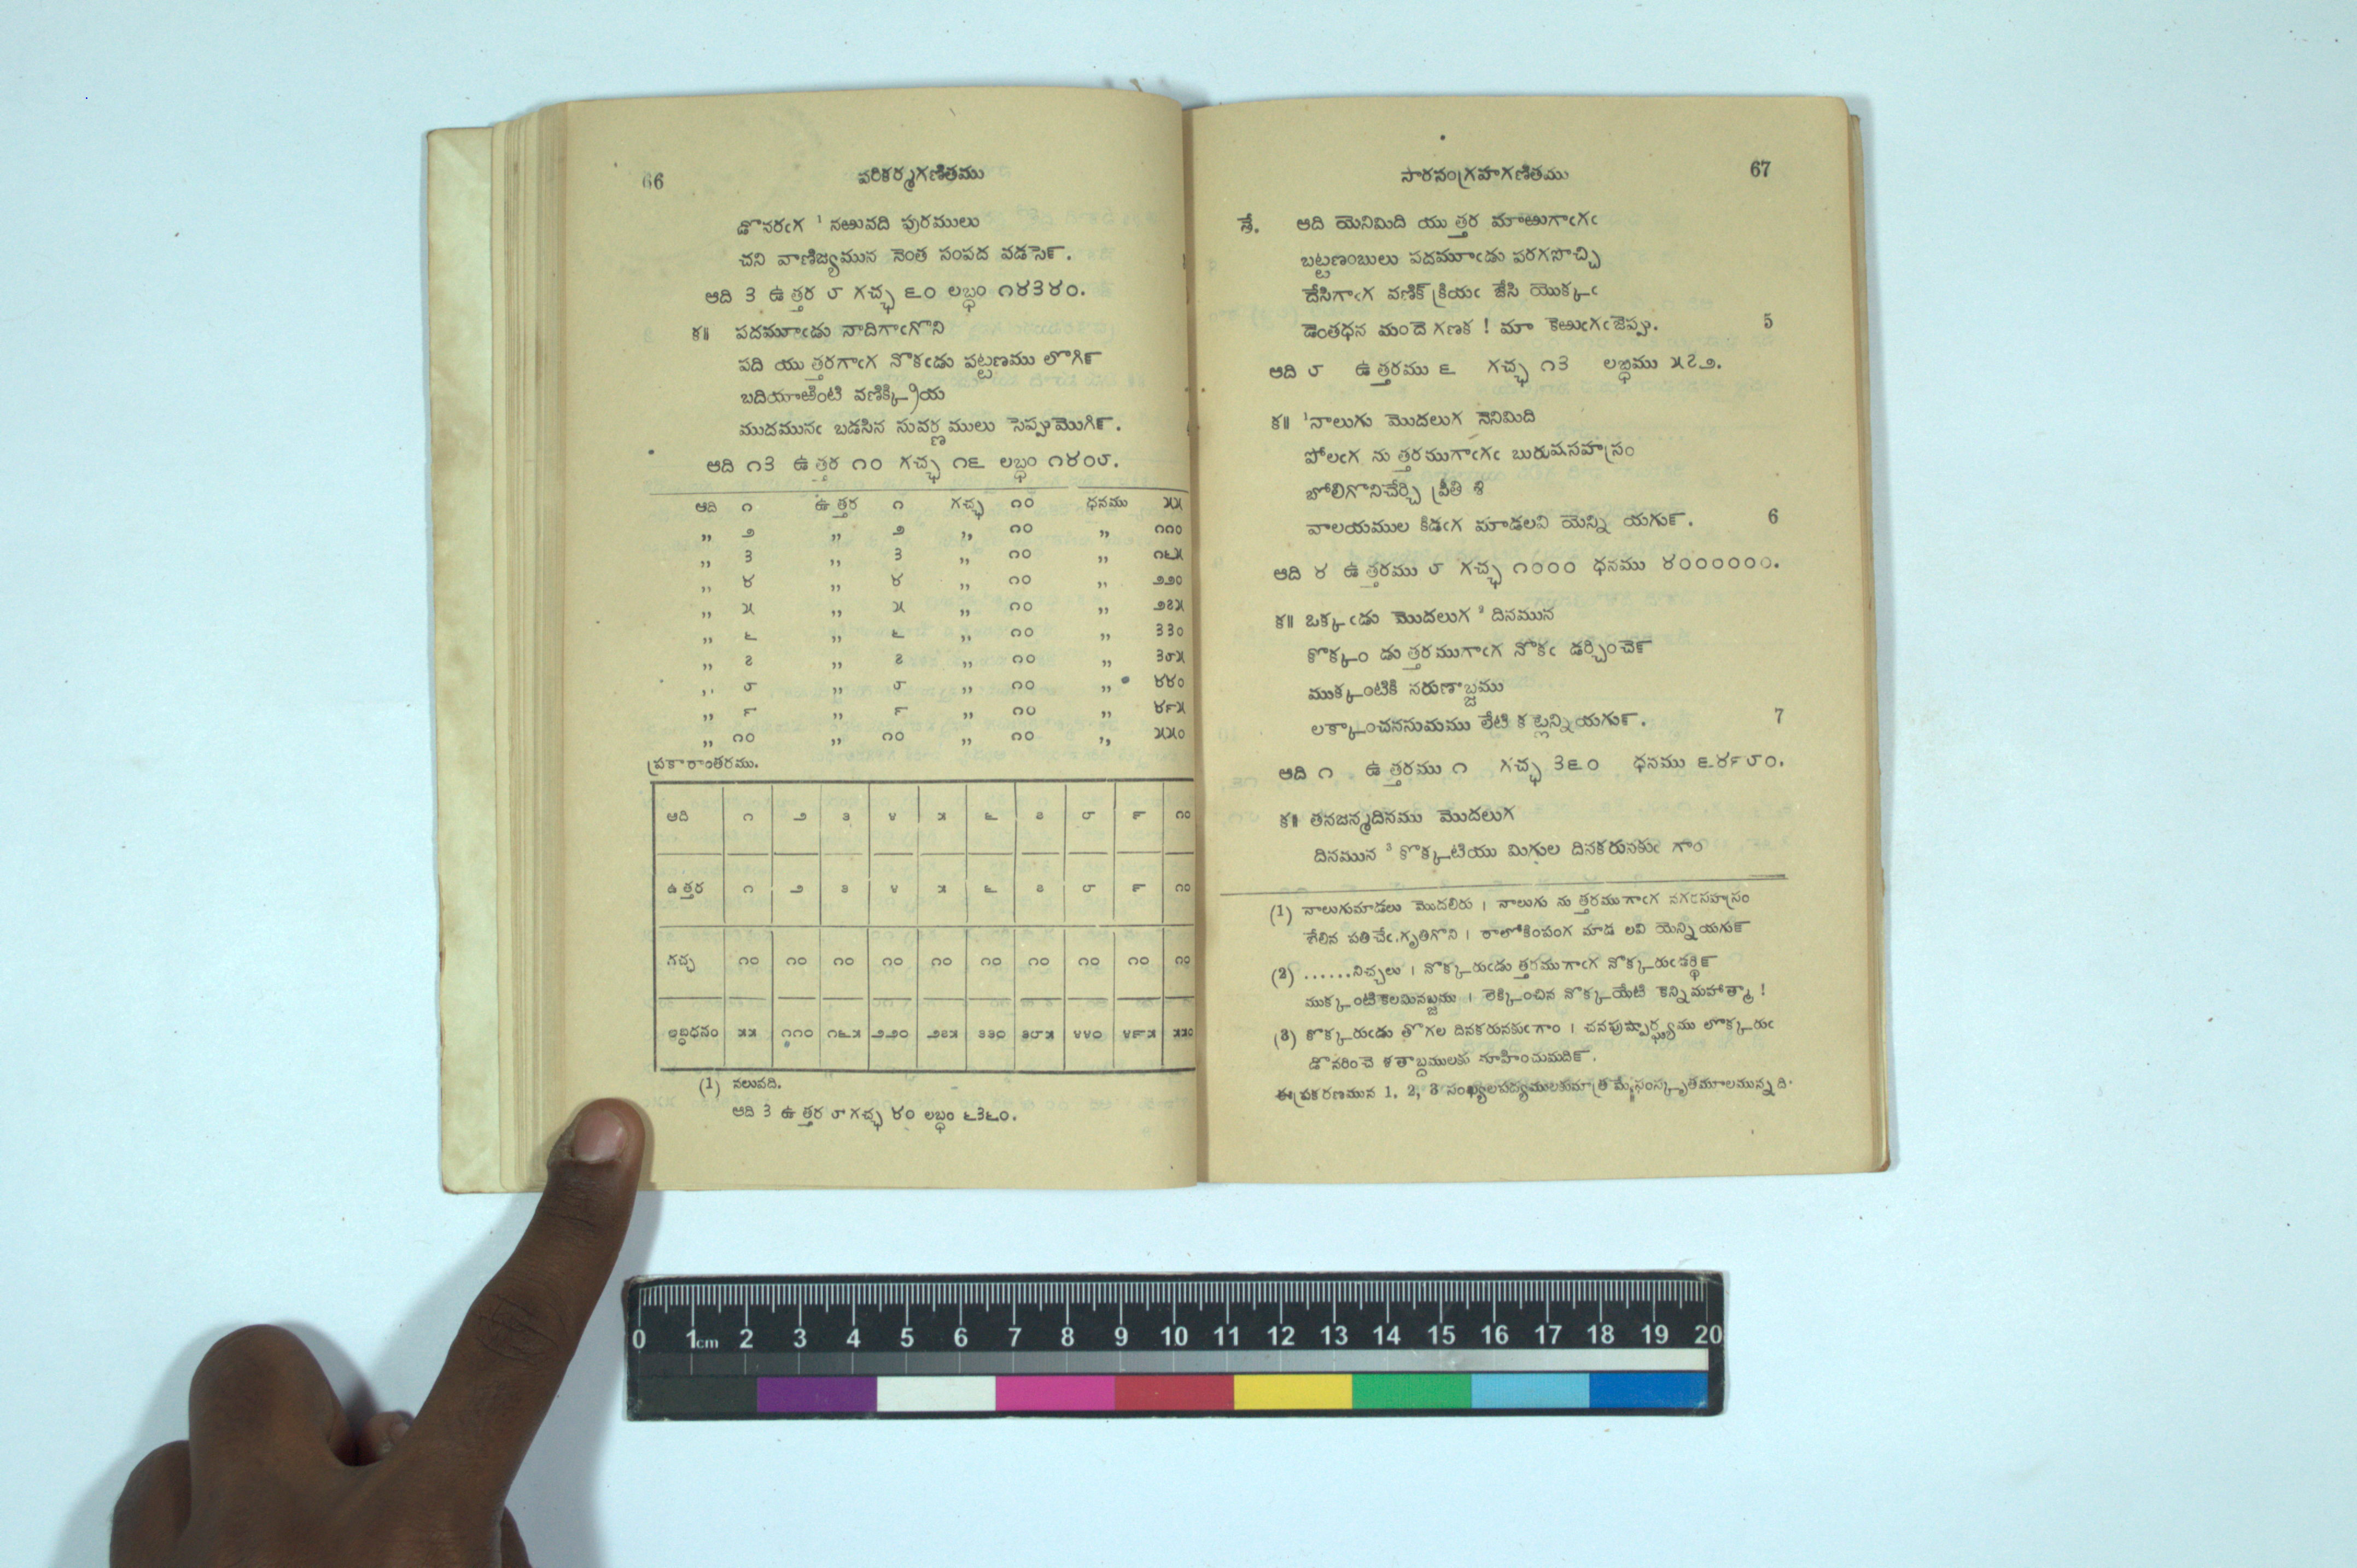 66 పరికర్మగణితము
డొనరఁగ ¹ నఱువది పురములు
చని వాణిజ్యమున నెంత సంపద వడసె౯.
ఆది ౩ ఉత్తర ౮ గచ్ఛ ౬౦ లబ్ధం ౧౪౩౪౦.
క॥ పదమూఁడు నాదిగాఁగొని
పది యుత్తరగాఁగ నొకఁడు పట్టణము లొగి౯
బదియాఱింటి వణిక్క్రియ
ముదమునఁ బడసిన సువర్ణములు సెప్పుమొగి౯.
ఆది ౧౩ ఉత్తర ౧౦ గచ్ఛ ౧౬ లబ్ధం ౧౪౦౮.
ఆది ౧ ఉత్తర ౧ గచ్ఛ ౧౦ ధనము ౫౫
,, ౨ ,, ౨ ,, ౧౦ ,, ౧౧౦
,, ౩ ,, ౩ ,, ౧౦ ,, ౧౬౫
,, ౪ ,, ౪ ,, ౧౦ ,, ౨౨౦
,, ౫ ,, ౫ ,, ౧౦ ,, ౨౭౫
,, ౬ ,, ౬ ,, ౧౦ ,, ౩౩౦
,, ౭ ,, ౭ ,, ౧౦ ,, ౩౮౫
,, ౮ ,, ౮ ,, ౧౦ ,, ౪౪౦
,, ౯ ,, ౯ ,, ౧౦ ,, ౪౯౫
,, ౧౦ ,, ౧౦ ,, ౧౦ ,, ౫౫౦
ప్రకారాంతరము.
ఆది ౧ ౨ ౩ ౪ ౫ ౬ ౭ ౮ ౯ ౧౦
ఉత్తర ౧ ౨ ౩ ౪ ౫ ౬ ౭ ౮ ౯ ౧౦
గచ్ఛ ౧౦ ౧౦ ౧౦ ౧౦ ౧౦ ౧౦ ౧౦ ౧౦ ౧౦ ౧౦
లబ్ధిధనం ౫౫ ౧౧౦ ౧౬౫ ౨౨౦ ౨౭౫ ౩౩౦ ౩౮౫ ౪౪౦ ౪౯౫ ౫౫౦
(1) నలువది.
ఆది ౩ ఉత్తర ౮ గచ్ఛ ౪౦ లబ్ధం ౬౩౬౦.
సారసంగ్రహగణితము 67
తే. ఆది యెనిమిది యుత్తర మాఱుగాఁగఁ
బట్టణంబులు పదమూఁడు పరగసొచ్చి
దేసిగాఁగ వణిక్ క్రియఁ జేసి యొక్కఁ
డెంతధన మందె గణక ! మా కెఱుఁగఁజెప్పు. 5
ఆది ౮ ఉత్తరము ౬ గచ్ఛ ౧౩ లబ్ధము ౫౭౨.
క॥ ¹నాలుగు మొదలుగ నెనిమిది
పోలఁగ నుత్తరముగాఁగఁ బురుషసహస్రం
బోలిగొనిచేర్చి ప్రీతి శి
వాలయముల కిడఁగ మాడలవి యెన్ని యగు౯. 6
ఆది ౪ ఉత్తరము ౮ గచ్ఛ ౧౦౦౦ ధనము ౪౦౦౦౦౦౦.
క॥ ఒక్కఁడు మొదలుగ ² దినమున
కొక్కం డుత్తరముగాఁగ నొకఁ డర్చించె౯
ముక్కంటికి నరుణాబ్జము
లక్కాంచనసుమము లేటి కట్లెన్నియగు౯. 7
ఆది ౧ ఉత్తరము ౧ గచ్ఛ ౩౬౦ ధనము ౬౪౯౮౦.
క॥ తనజన్మదినము మొదలుగ
దినమున ³ కొక్కటియు మిగుల దినకరునకుఁ గాం
(1) నాలుగుమాడలు మొదలిరు । నాలుగు నుత్తరముగాఁగ నగరసహస్రం
శేలిన పతిచేఁ.గృతిగొని । రాలోకింపంగ మాడ లవి యెన్నియగు౯
(2) ......నిచ్చలు । నొక్కరుఁడుత్తరముగాఁగ నొక్కరుఁడర్థి౯
ముక్కంటికలమినబ్జము । లెక్కించిన నొక్కయేటి కెన్నిమహాత్మా !
(3) కొక్కరుఁడు తొగల దినకరునకుఁగాం । చనపుష్పార్ఘ్యము లొక్కరుఁ
డొనరించె శతాబ్దములకు నూహించుమది౯.
ఈప్రకరణమున 1, 2, 3 సంఖ్యలపద్యములకుమాత్రమే సంస్కృతమూలమున్నది.